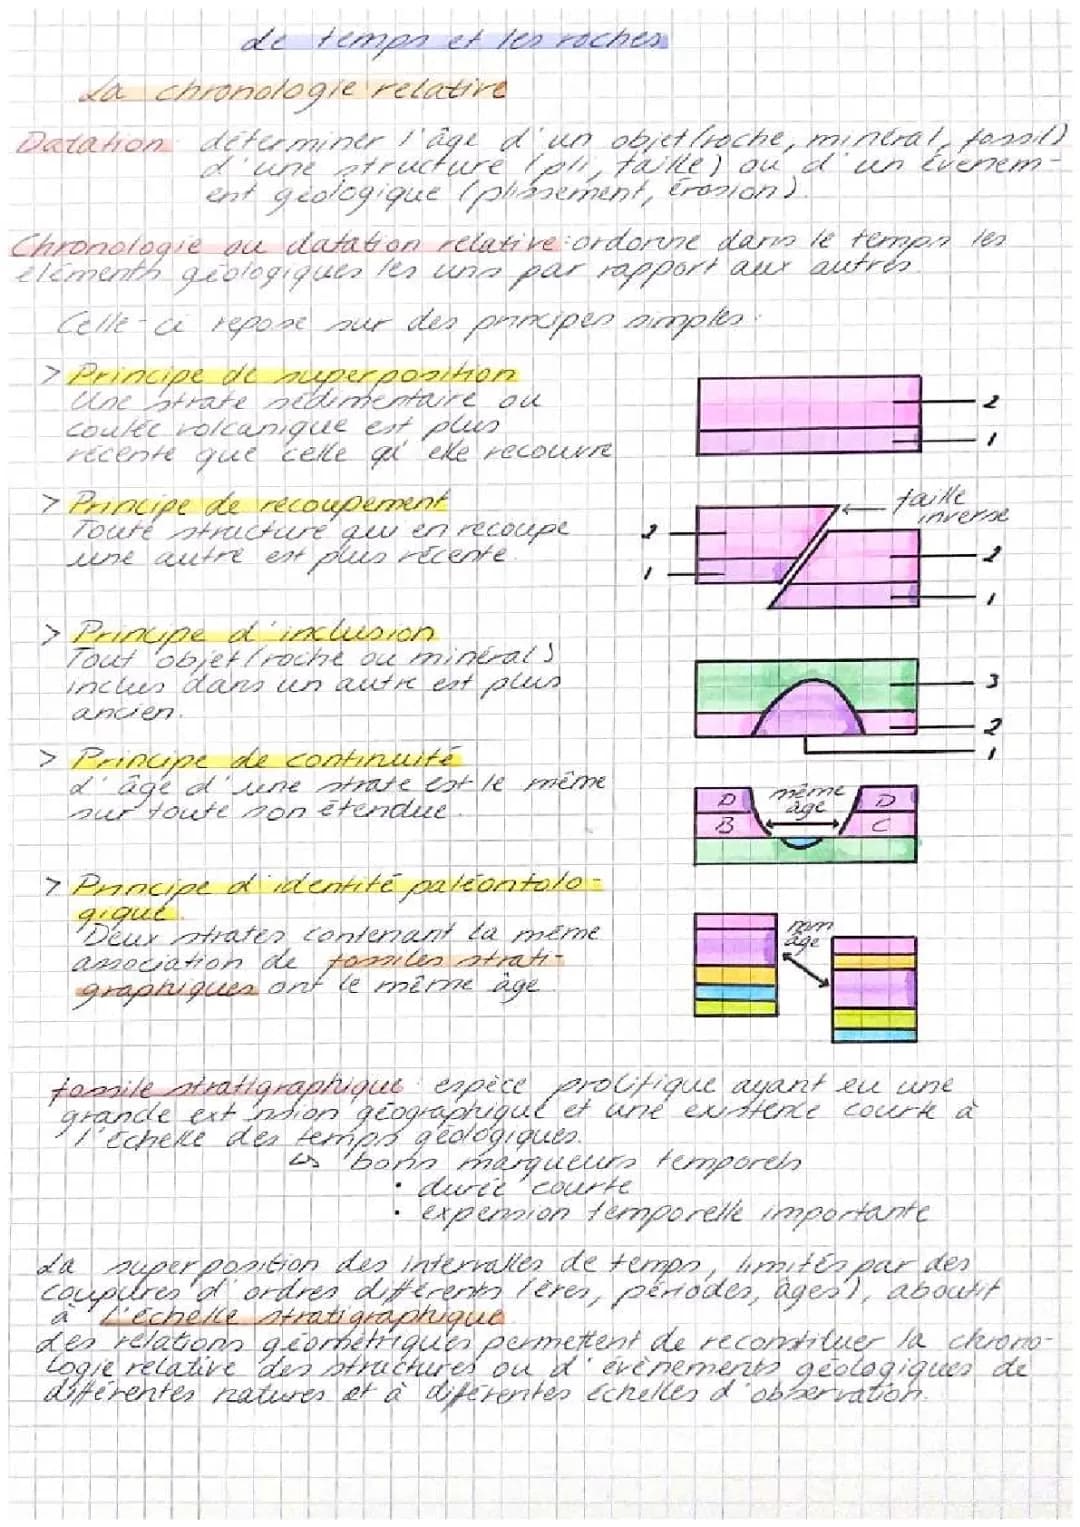 Le temps et les roches
La chronologie relative
Datation: déterminer l'âge d'un objet (roche, minéral, fossil)
d'une structure (pli, faille) ou d'un évènem-
ent géologique (plissement, érosion).
Chronologie ou datation relative: ordonne dans le temps les
éléments géologiques les uns par rapport aux autres.
Celle-ci repose sur des principes simples:
> Principe de superposition
Une strate sédimentaire ou
coulée volcanique est plus
récente que celle qu'elle recouvre
2
1
> Principe de recoupement
Toute structure qui en recoupe
une autre est plus récente.
faille
inverse
2
1
2
1
> Principe d'inclusion
Tout objet (roche ou minéral)
inclus dans un autre est plus
ancien.
3
2
1
> Principe de continuité
L'âge d'une strate est le même
sur toute son étendue.
D
même
âge
D
B
C
> Principe d'identité paléontolo-
gique.
Deux strates contenant la même
association de fossiles strati-
graphiques ont le même âge
mm
âge
fossile stratigraphique: espèce prolifique ayant eu une
grande ext nsion géographique et une existence courte à
l'échelle des temps géologiques.
↳ bons marqueurs temporels
• durée courte
• expension temporelle importante
La superposition des intervalles de temps, limités par des
coupures d'ordres différents (ères, périodes, âges), aboutit
à l'échelle stratigraphique
Les relations géométriques permettent de reconstituer la chrono-
logie relative des structures ou d'évènements géologiques de
différentes natures et à différentes échelles d'observation.